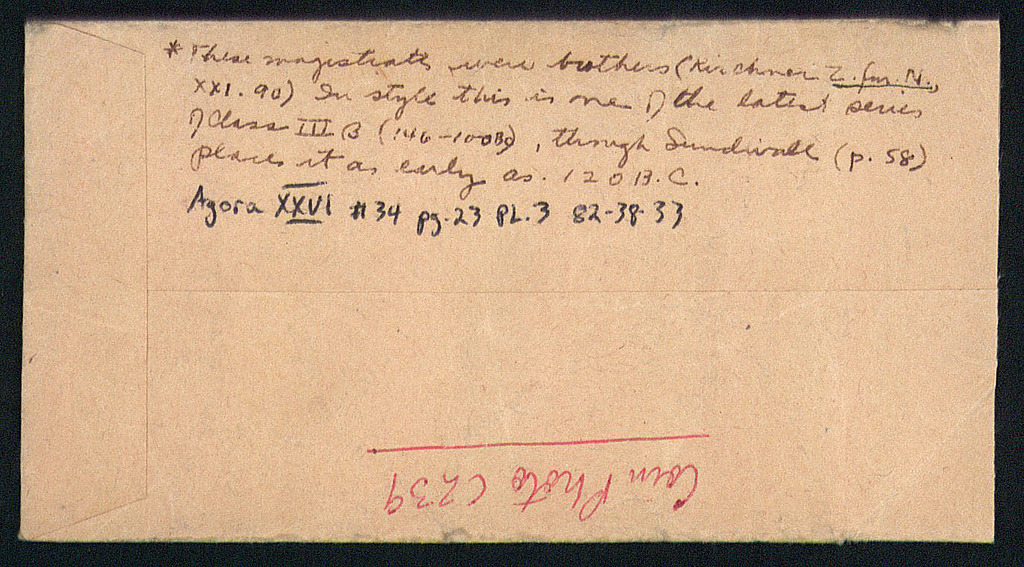 * These magistrates were brothers (Kirchner Z. fur. N.,
XXI. 90) In style this is one of the latest series
of Class III B (146-100 BC), though Sundwall (p. 58)
places it as early as. 120 B.C.
Agora XXVI #34 pg.23 PL.3 82-38-33
Coin Photo C239